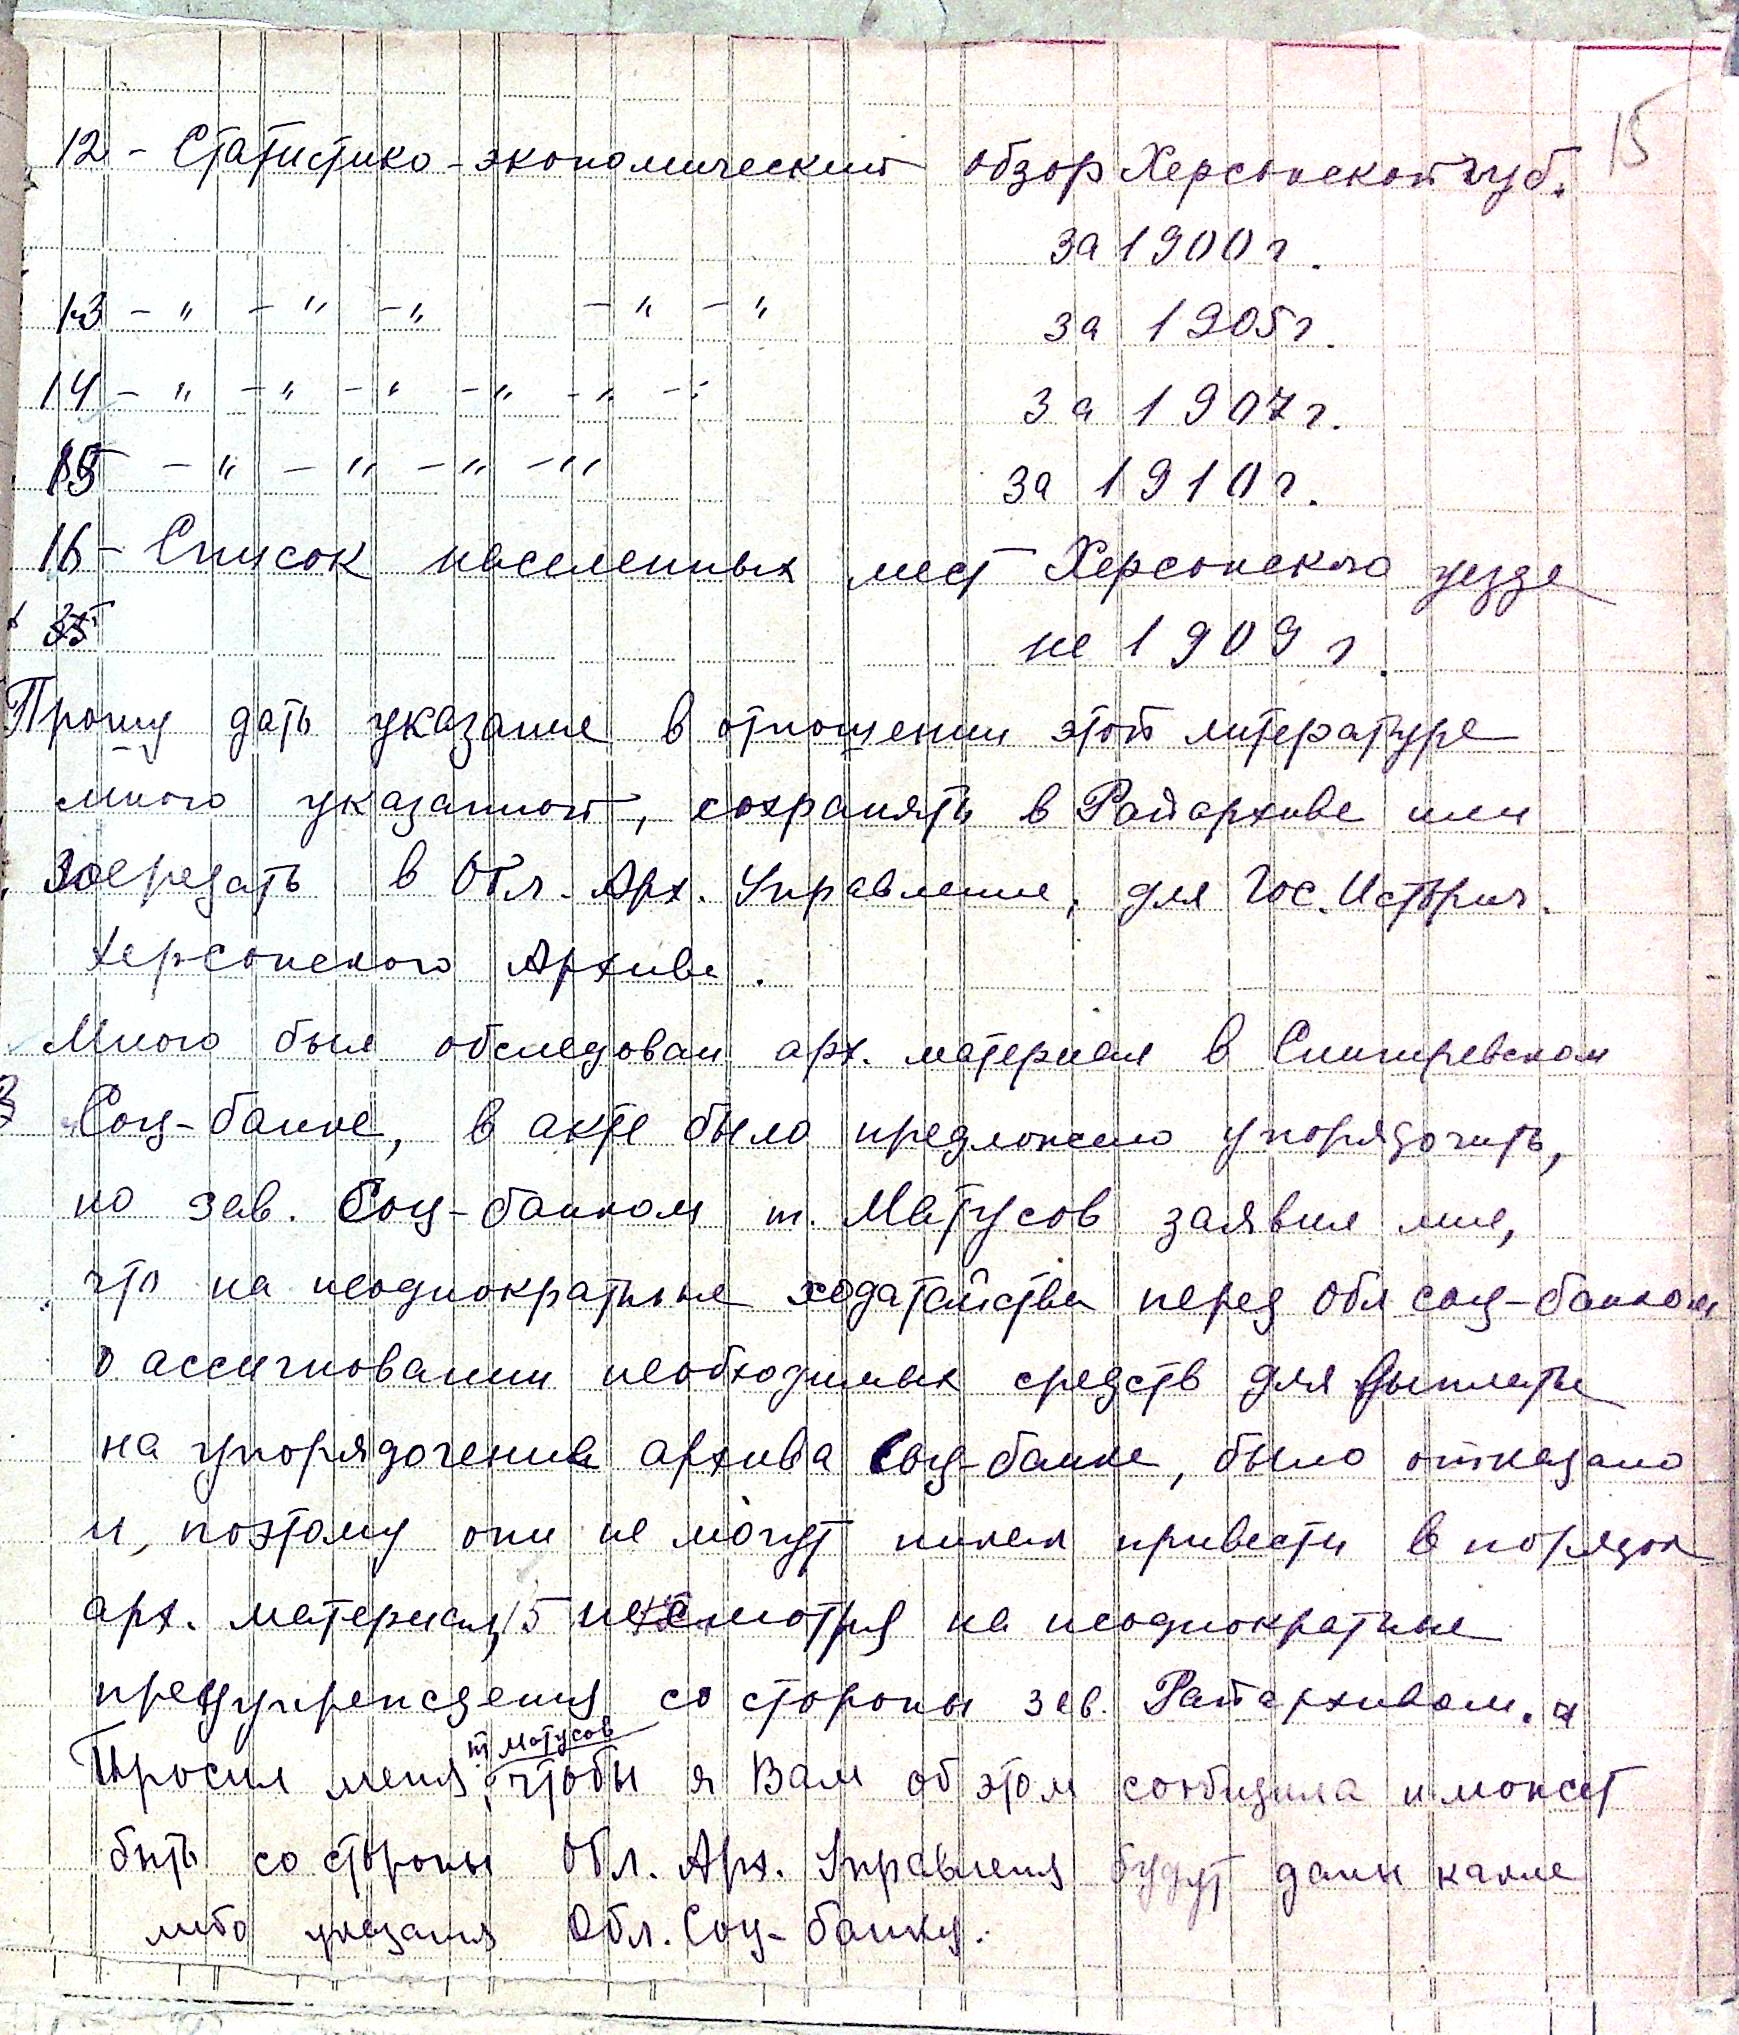 15
12 - Статистико-экономический обзор Херсонской губ.
за 1900 г.
13 - " - " - " - " - " за 1905 г.
14 - " - " - " - " - " - " за 1907 г.
15 - " - " - " - " за 1910 г.
16 - Список населенных мест Херсонского уезда
на 1909 г.
Прошу дать указание в отношении этой литературе
мною указанной, сохранять в Райархиве или
в Обл. Арх. Управление, для Гос. Историч.
Херсонского Архива.
Мною был обследован арх. материал в Снигиревском
Соц-банке, в акте было предложено упорядочить,
но зав. Соц-банком т. Матусов заявил мне,
что на неоднократные ходатайства перед Обл соц-банком
о ассигновании необходимых средств для выплаты
на упорядочение архива Соц-банке, было отказано
и, поэтому они не могут никак привести в порядок
арх. материал, несмотря на неоднократные
предупреждения со стороны зав. Райархивом.
т Матусов
Просил меня, чтобы я Вам об этом сообщила и может
быть со стороны Обл. Арх. Управления будут даны какие
либо указания Обл. Соц-банку.